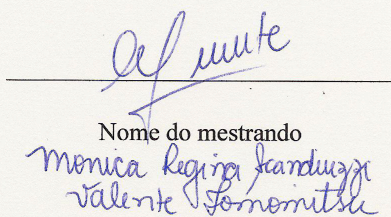 Nome do mestrando
Monica Regina Scanduzzi
Valente Tomomitsu